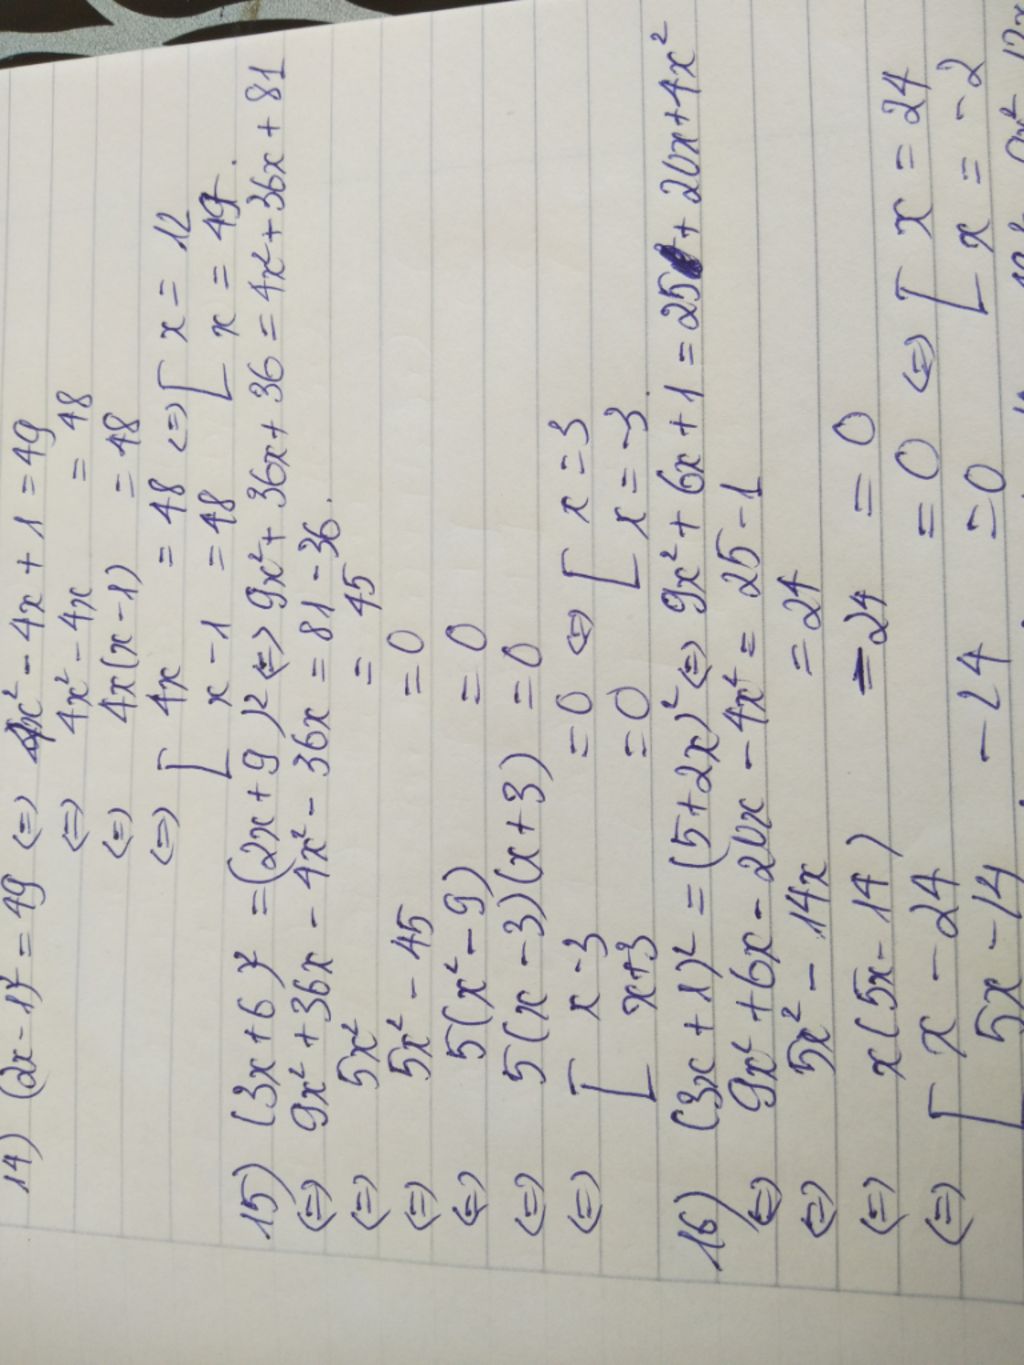 14) (2x-1)² = 49 (=) 4x² - 4x + 1 = 49
(=) 4x² - 4x = 48
(=) 4x(x-1) = 48
(=) [ 4x = 48 (=) [ x = 12
x - 1 = 48 [ x = 49.
15) (3x+6)² = (2x+9)² (=) 9x² + 36x + 36 = 4x² + 36x + 81
(=) 9x² + 36x - 4x² - 36x = 81 - 36.
(=) 5x² = 45
(=) 5x² - 45 = 0
(=) 5(x² - 9) = 0
(=) 5(x-3)(x+3) = 0
(=) [ x - 3 = 0 (=) [ x = 3
x + 3 = 0 [ x = -3.
16) (3x+1)² = (5+2x)² (=) 9x² + 6x + 1 = 25 + 20x + 4x²
(=) 9x² + 6x - 20x - 4x² = 25 - 1
(=) 5x² - 14x = 24
(=) x(5x - 14) - 24 = 0
(=) [ x - 24 = 0 (=) [ x = 24
5x - 14 - 24 = 0 [ x = -2